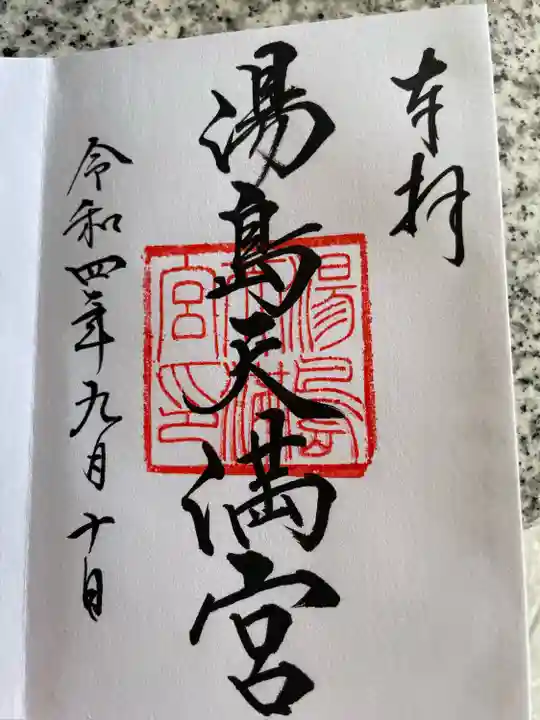 奉拝
湯島天満宮
湯島天満宮印
令和四年九月十日